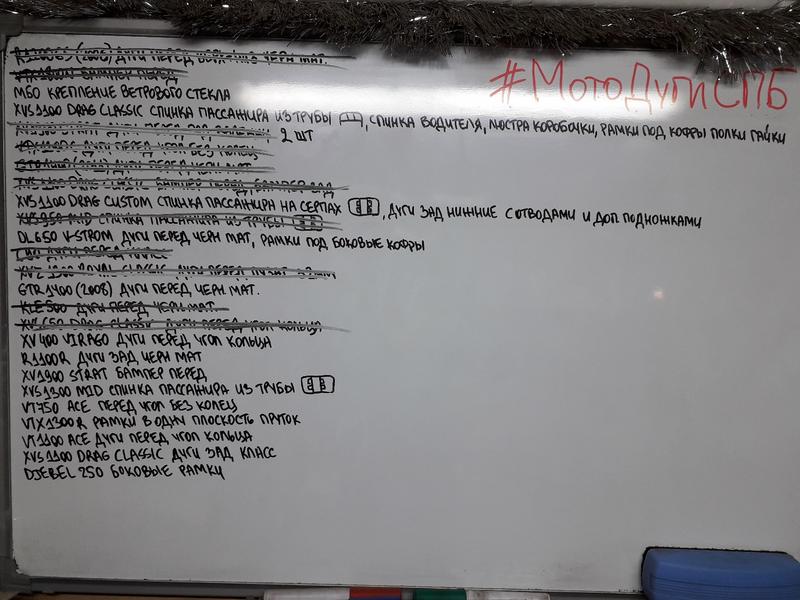 #МотоДугиСПБ
R1200GS (2008) ДУГИ ПЕРЕД ЧЕРН МАТ.
БАМПЕР ПЕРЕД
М60 КРЕПЛЕНИЕ ВЕТРОВОГО СТЕКЛА
XVS1100 DRAG CLASSIC СПИНКА ПАССАЖИРА ИЗ ТРУБЫ, СПИНКА ВОДИТЕЛЯ, ЛЮСТРА КОРОБОЧКИ, РАМКИ ПОД КОФРЫ ПОЛКИ ГАЙКИ
2 ШТ
ДУГИ ПЕРЕД ЧЕРН БЕЗ КОЛЕЦ
ДУГИ ПЕРЕД ЧЕРН МАТ
XVS1100 DRAG CLASSIC БАМПЕР ПЕРЕД, БАМПЕР ЗАД
XVS1100 DRAG CUSTOM СПИНКА ПАССАЖИРА НА СЕРПАХ, ДУГИ ЗАД НИЖНИЕ С ОТВОДАМИ И ДОП. ПОДНОЖКАМИ
XVS950 MID СПИНКА ПАССАЖИРА ИЗ ТРУБЫ
DL650 V-STROM ДУГИ ПЕРЕД ЧЕРН МАТ, РАМКИ ПОД БОКОВЫЕ КОФРЫ
ДУГИ ПЕРЕД КЛАСС
XVZ1300 ROYAL CLASSIC ДУГИ ПЕРЕД
GTR1400 (2008) ДУГИ ПЕРЕД ЧЕРН МАТ.
KLE500 ДУГИ ПЕРЕД ЧЕРН МАТ.
XVS650 DRAG CLASSIC ДУГИ ПЕРЕД ЧГОП КОЛЬЦА
XV400 VIRAGO ДУГИ ПЕРЕД ЧГОП КОЛЬЦА
R1100R ДУГИ ЗАД ЧЕРН МАТ
XV1900 STRAT БАМПЕР ПЕРЕД
XVS1300 MID СПИНКА ПАССАЖИРА ИЗ ТРУБЫ
VT750 ACE ПЕРЕД ЧГОП БЕЗ КОЛЕЦ
VTX1300R РАМКИ В ОДНУ ПЛОСКОСТЬ ПРУТОК
VT1100 ACE ДУГИ ПЕРЕД ЧГОП КОЛЬЦА
XVS1100 DRAG CLASSIC ДУГИ ЗАД КЛАСС
DJEBEL 250 БОКОВЫЕ РАМКИ